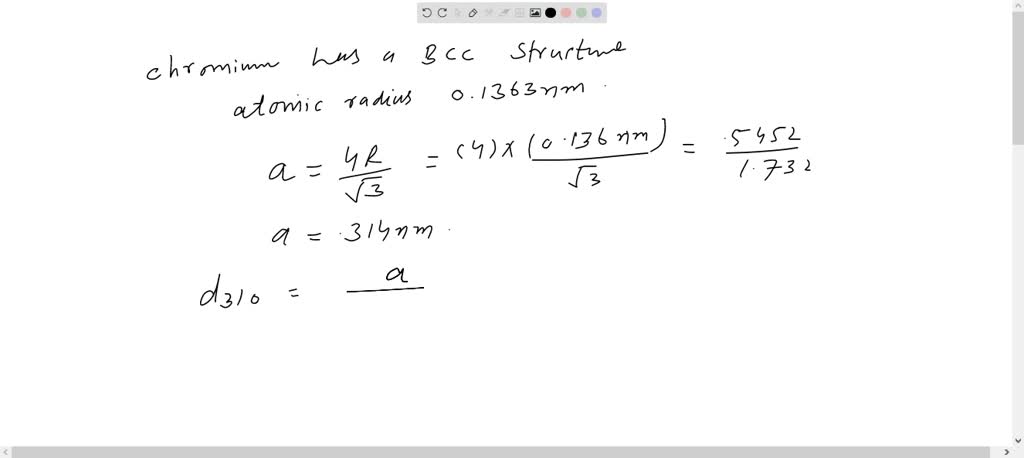 chromium has a BCC structure
atomic radius 0.1363nm.
a = 4R/√3 = (4)×(0.136nm)/√3 = .5452/1.732
a = .314nm.
d310 = a